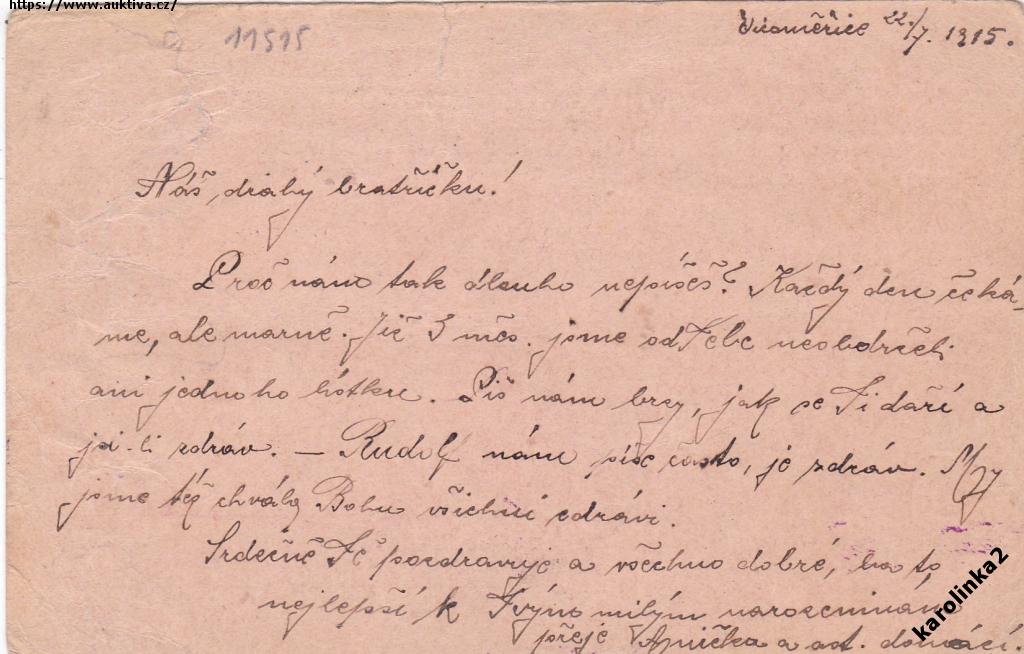 https://www.auktiva.cz/
11515
22./7. 1915.
Náš drahý bratříčku!
Proč nám tak dlouho nepíšeš? Každý den čeká-
me, ale marně. Již 3 měs. jsme od Tebe neobdrželi
ani jednoho lístku. Piš nám brzy, jak se Ti daří a
jsi-li zdráv. — Rudolf nám píše často, je zdráv. My
jsme též chvála Bohu všichni zdrávi.
Srdečně Tě pozdravuje a všechno dobré, ba to
nejlepší k Tvým milým narozeninám
přeje Anička a ost. domácí.
karolinka2